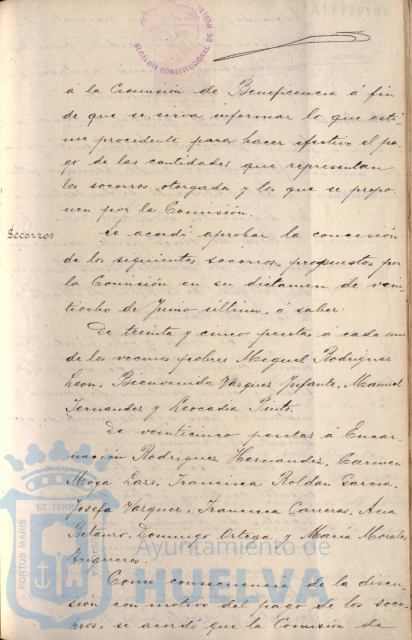 ALCALDIA CONSTITUCIONAL DE
a la Comisión de Beneficencia á fin
de que se sirva informar lo que esti-
me procedente para hacer efectivo el pa-
go de las cantidades que representan
los socorros otorgados y los que se propo-
nen por la Comisión.
Socorros
Se acordó aprobar la concesión
de los siguientes socorros propuestos por
la Comisión en su dictamen de vein-
tiocho de Junio último, á saber:
De treinta y cinco pesetas á cada uno
de los vecinos pobres Miguel Rodriguez
Leon, Bienvenida Vazquez Infante, Manuel
Fernandez y Leocadia Pinto.
De veinticinco pesetas á Encar-
nación Rodriguez Hernandez, Carmen
Moya Lazo, Francisca Roldan Garcia,
Josefa Vazquez, Francisca Carreras, Ana
Domingo Ortega y Maria Morales
Como consecuencia de la discu-
sión con motivo del pago de los soco-
rros, se acordó que la Comisión de
PORTUS MARIS ET TERRAE
Ayuntamiento de
HUELVA